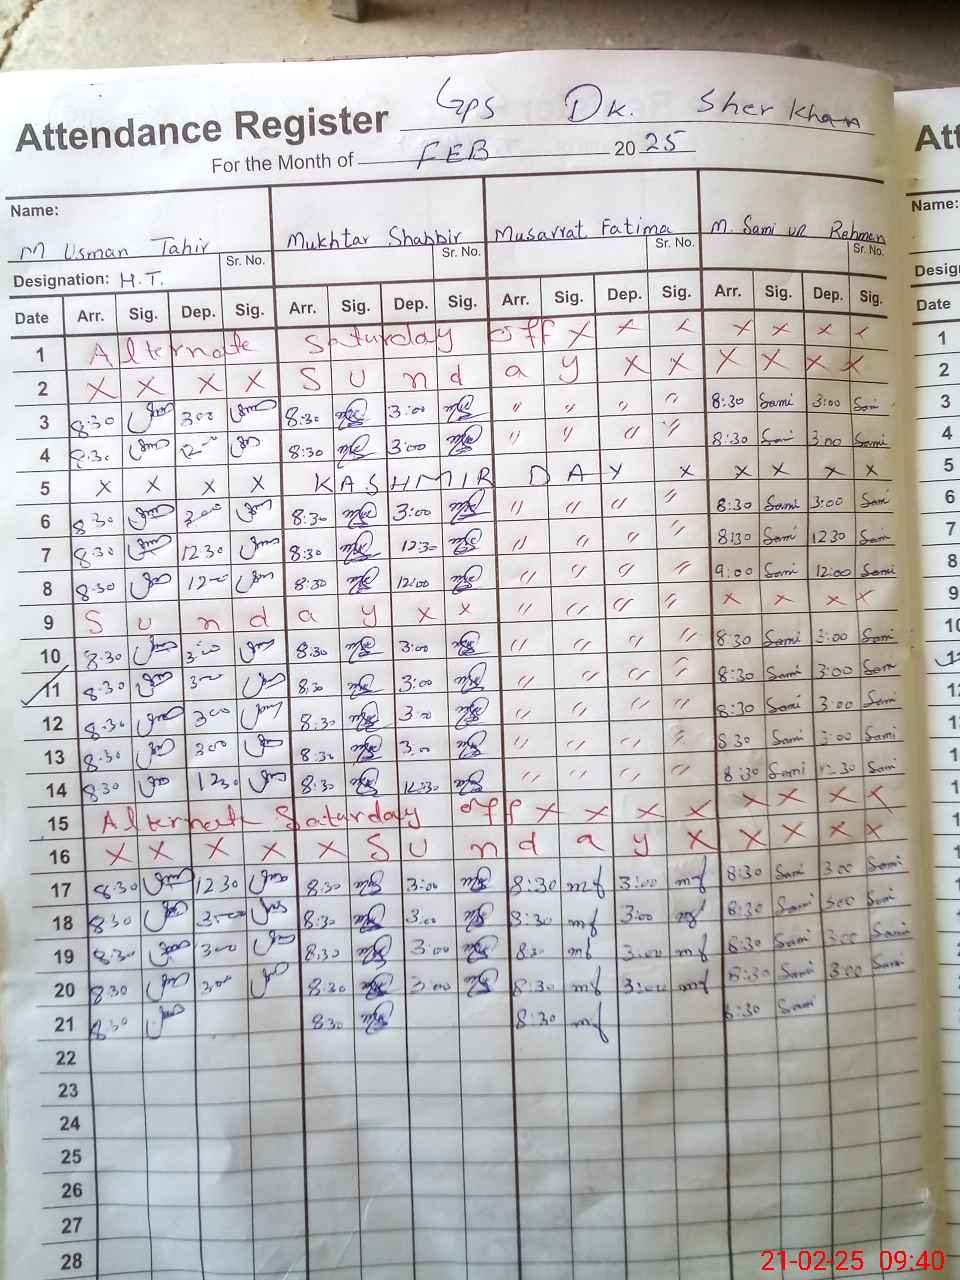 Attendance Register Gps Dk. Sher Khan
For the Month of FEB 2025
Name: M Usman Tahir Mukhtar Shabbir Musarrat Fatima M. Sami ur Rehman
Designation: H.T. Sr. No. Sr. No. Sr. No. Sr. No.
Date Arr. Sig. Dep. Sig. Arr. Sig. Dep. Sig. Arr. Sig. Dep. Sig. Arr. Sig. Dep. Sig.
1 Alternate Saturday off x x x x x x x
2 x x x x Sunday x x x x x x
3 8:30 300 8:30 3:00 " " " " 8:30 Sami 3:00 Sami
4 8:30 8:30 3:00 " " " " 8:30 Sami 3:00 Sami
5 x x x x KASHMIR DAY x x x x x
6 8:30 300 8:30 3:00 " " " " 8:30 Sami 3:00 Sami
7 8:30 12:30 8:30 12:30 " " " " 8:30 Sami 12:30 Sami
8 8:30 1200 8:30 12:00 " " " " 9:00 Sami 12:00 Sami
9 Sunday x x " " " " x x x x
10 8:30 3:00 8:30 3:00 " " " " 8:30 Sami 3:00 Sami
11 8:30 300 8:30 3:00 " " " " 8:30 Sami 3:00 Sami
12 8:30 300 8:30 3:00 " " " " 8:30 Sami 3:00 Sami
13 8:30 300 8:30 3:00 " " " " 8:30 Sami 3:00 Sami
14 8:30 1230 8:30 12:30 " " " " 8:30 Sami 12:30 Sami
15 Alternate Saturday off x x x x x x x x
16 x x x x x Sunday x x x x x
17 8:30 1230 8:30 3:00 8:30 mf 3:00 mf 8:30 Sami 3:00 Sami
18 8:30 300 8:30 3:00 8:30 mf 3:00 mf 8:30 Sami 3:00 Sami
19 8:30 300 8:30 3:00 830 mf 3:00 mf 8:30 Sami 3:00 Sami
20 8:30 300 8:30 3:00 8:30 mf 3:00 mf 8:30 Sami 3:00 Sami
21 8:30 8:30 8:30 mf 8:30 Sami
22
23
24
25
26
27
28
Att
Name:
Desig
Date
1
2
3
4
5
6
7
8
9
10
21-02-25 09:40